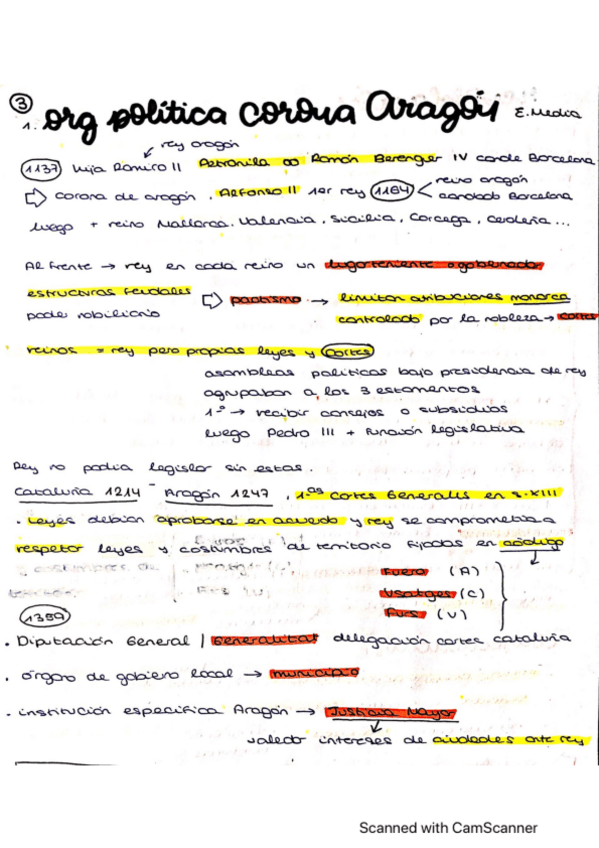 3
1. org política corona Aragón E. Media
rey aragón
1137 hija Ramiro II Petronila ∞ Ramón Berenguer IV conde Barcelona
⇨ corona de aragón. Alfonso II 1er rey 1164 < reino aragón
condado Barcelona
luego + reino Mallorca, Valencia, Sicilia, Córcega, Cerdeña...
Al frente → rey en cada reino un lugarteniente o gobernador
estructuras feudales ⇨ pactismo → limitan atribuciones monarca
poder nobiliario controlado por la nobleza → cortes
· reinos = rey pero propias leyes y cortes
asambleas políticas bajo presidencia de rey
agrupaban a los 3 estamentos
1º → recibir consejos o subsidios
luego Pedro III + función legislativa
Rey no podía legislar sin estas.
Cataluña 1214 - Aragón 1247, 1ªs Cortes Generales en s.XIII
. Leyes debían aprobarse en acuerdo y rey se comprometía a
respetar leyes y costumbres de territorio fijadas en código
Fuero (A)
Usatges (C)
Furs (V)
1359
. Diputación General / Generalitat delegación cortes cataluña
. órgano de gobiero local → municipio
. institución específica Aragón → Justicia Mayor
valedor intereses de ciudades ante rey
Scanned with CamScanner